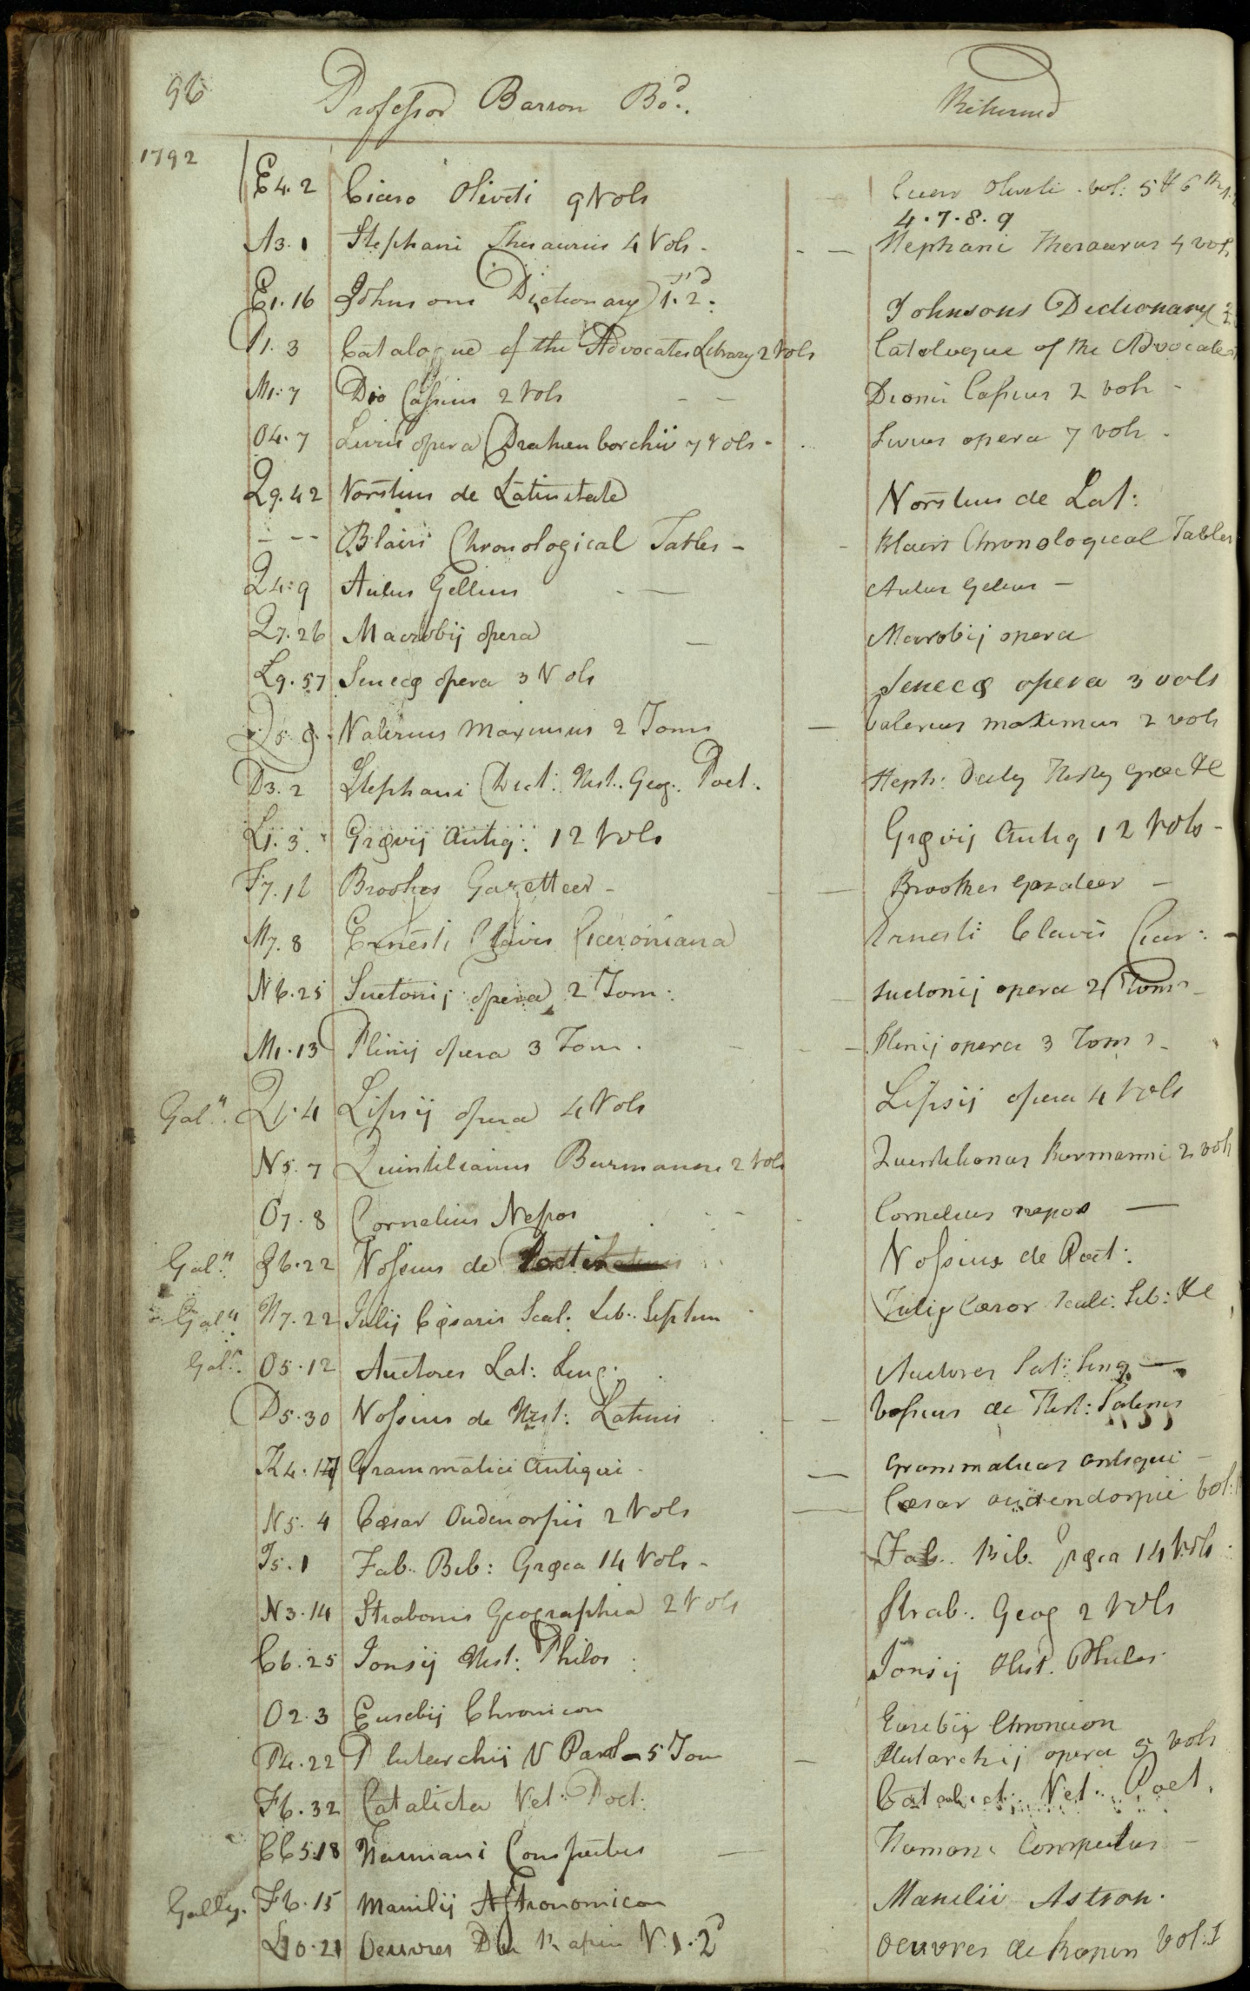 96 Professor Barron Bo.d Returned
1792
E4.2 Cicero Oliveti 9 Vols Cicero Oliveti vol: 5th 6th
4.7.8.9
A3.1 Stephani Thesaurus 4 Vols - Stephani Thesaurus 4 vols
E1.16 Johnsons Dictionary 1.2d. Johnsons Dictionary 2
P1.3 Catalogue of the Advocates Library 2 Vols Catalogue of the Advocates
M1.7 Dio Cassius 2 Vols Dionis Cassius 2 vols -
O4.7 Livii opera Drakenborchii 7 Vols - Livius opera 7 vols -
Q9.42 Vorstius de Latinitate Vorstius de Lat:
- -- Blairs Chronological Tables - Blairs Chronological Tables
Q4.9 Aulus Gellius Aulus Gelius -
Q7.26 Macrobij opera Macrobij opera
L9.57 Senecæ opera 3 Vols Senecæ opera 3 vols
D5.9. Valerius Maximus 2 Toms Valerius maximus 2 vols
D3.2 Stephani Dict: Hist. Geog: Poet. Steph:
L1.3. Grævij Antiq: 12 Vols Grævij Antiq 12 Vols -
F7.12 Brookes Gazetteer - Brookes Gazeteer -
M7.8 Ernesti Clavis Ciceroniana Ernesti Clavis Cicer: -
N6.25 Suetonij opera 2 Tom: Suetonij opera 2 Toms -
M1.13 Plinij opera 3 Tom. Plinij opera 3 Toms -
Gal.n. Q1.4 Lipsij opera 4 Vols Lipsij opera 4 Vols
N5.7 Quintilianus Burmanni 2 Vols Quintilianus Burmanni 2 vols
O7.8 Cornelius Nepos Cornelius nepos -
Gal.n. 6.22 Vossius de Poetis Vossius de Poet:
Gal.n. N7.22 Julij Cæsaris Scal. Lib. Septem Julij Cæsar Scali: Lib: &c
Gal.n. O5.12 Auctores Lat: Ling. Auctores Lat: Ling -
D5.30 Vossius de Hist: Latinis Vossius de Hist: Latinis
K4.17 Grammatici Antiqui Grammaticas antiqui -
N5.4 Cæsar Oudenorpii 2 Vols Cæsar oudendorpii Vol:
T5.1 Fab. Bib: Græca 14 Vols - Fab. Bib. Græca 14 Vols
N3.14 Strabonis Geographia 2 Vols Strab. Geog 2 Vols
C6.25 Jonsij Hist: Philos: Jonsij Hist. Philos
O2.3 Eusebij Chronicon Eusebij Chronicon
P4.22 Plutarchij V Paral - 5 Tom Plutarchij opera 5 vols
F6.32 Catalecta Vet: Poet: Catalect: Vet: Poet.
CC5.18 Conspectus
Gally. F6.15 Manilij Astronomicon Manilii Astron.
L10.21 Oeuvres Du Rapin V.1.2d Oeuvres de Rapin Vol. I